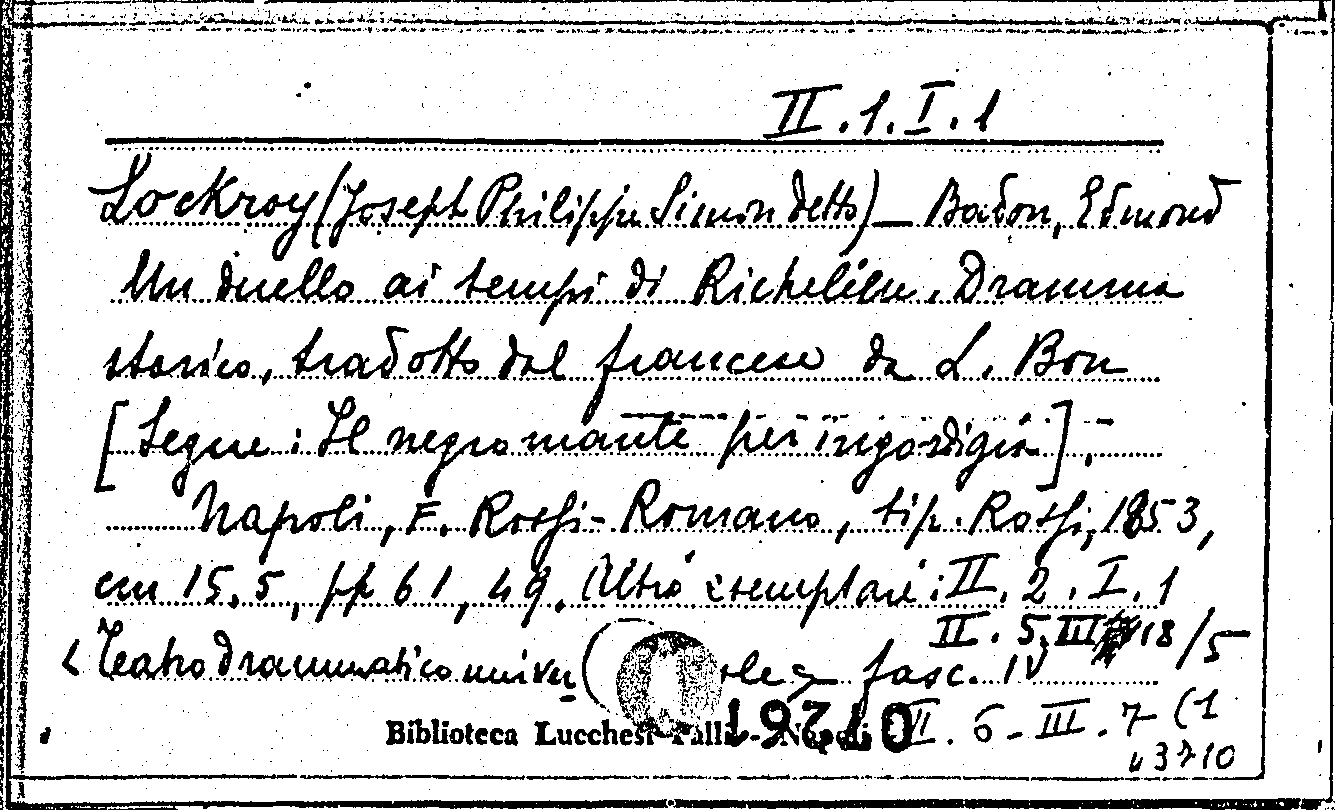 II.1.I.1
Lockroy (Joseph Philippe Simon detto) — Badon, Edmond
Un duello ai tempi di Richelieu. Dramma
storico, tradotto dal francese da L. Bon
[Segue: Il negromante per ingordigia].-
Napoli, F. Rossi-Romano, tip. Rossi, 1853,
cm 15.5, pp 61, 49. Altri esemplari: II. 2. I. 1
II. 5. III 18/5
<Teatro drammatico univer sale> fasc. IV
Biblioteca Lucchesi-Palli - Napoli II. 6 - III. 7 (1